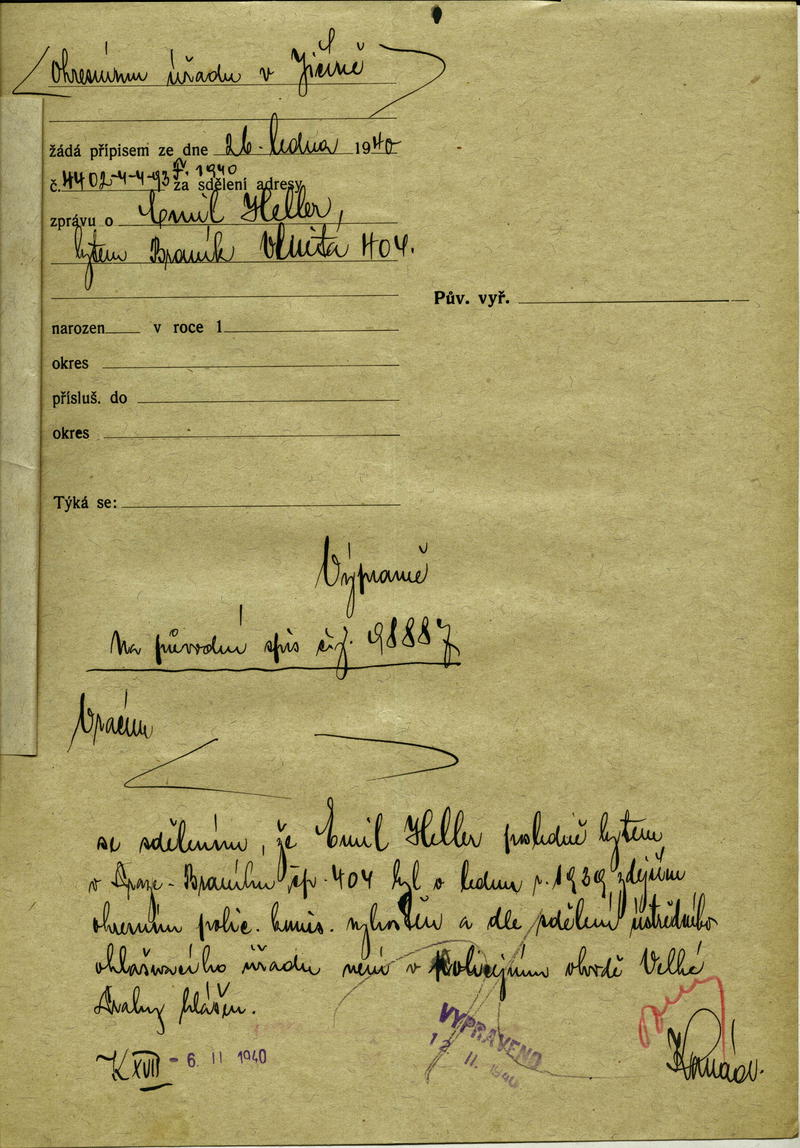 Okresnímu úřadu v Jičíně
žádá přípisem ze dne 26. ledna 1940
č. 4402-4-4-93 1940 za sdělení adresy
zprávu o Emil Heller,
bytem Braník Vlnitá 404.
Pův. vyř.
narozen v roce 1
okres
přísluš. do
okres
Týká se:
Výpravně
Na původní spis čj. 98887
Vracím
se sdělením, že Emil Heller posledně bytem
v Praze-Braníku čp. 404 byl v lednu r. 1939 zdejším
okresním polic. komis. vyhoštěn a dle sdělení ústředního
ohlašovacího úřadu není v policejním obvodě Velké
Prahy hlášen.
K XVII - 6. II 1940
VYPRAVENO
12. II. 1940